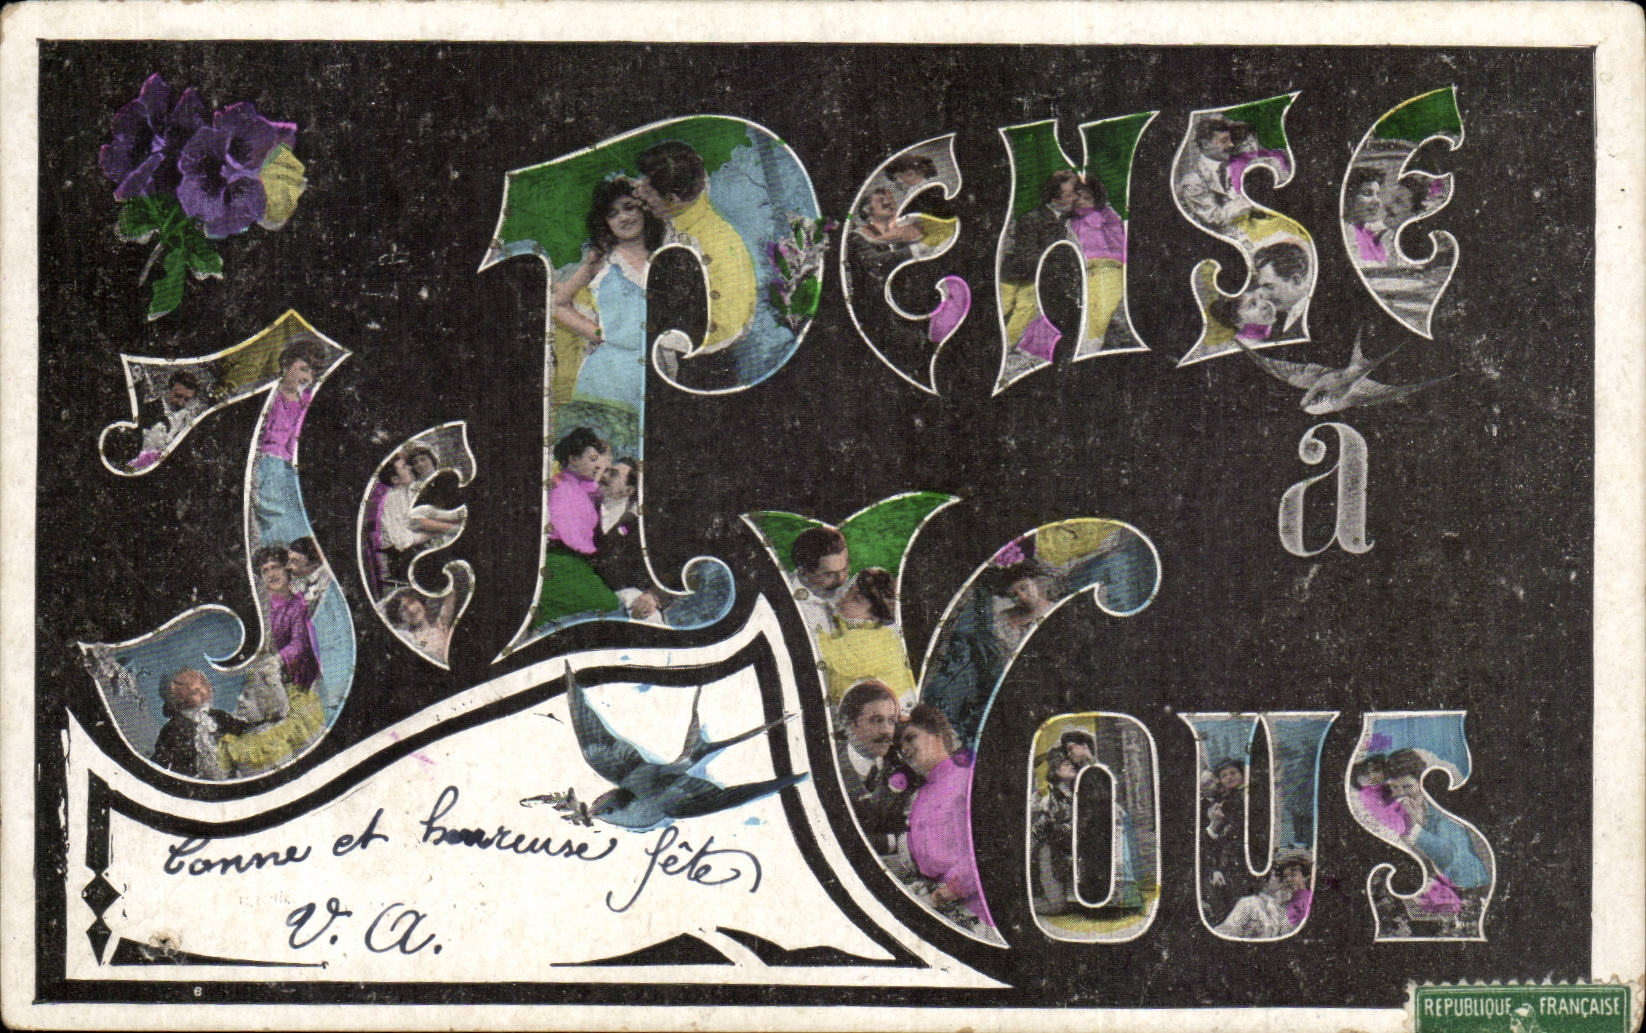 Je Pense
à
Vous
bonne et heureuse fête
V. A.
8
REPUBLIQUE FRANÇAISE